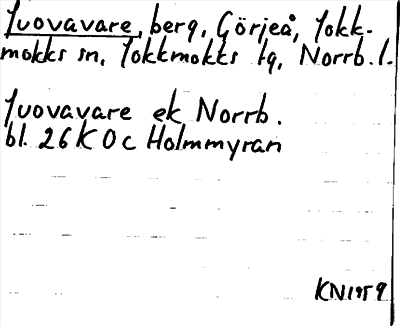 Juovavare, berg, Görjeå, Jokk-
mokks sn, Jokkmokks tg, Norrb. l.
Juovavare ek Norrb.
bl. 26 K 0 c Holmmyran
KN 1959